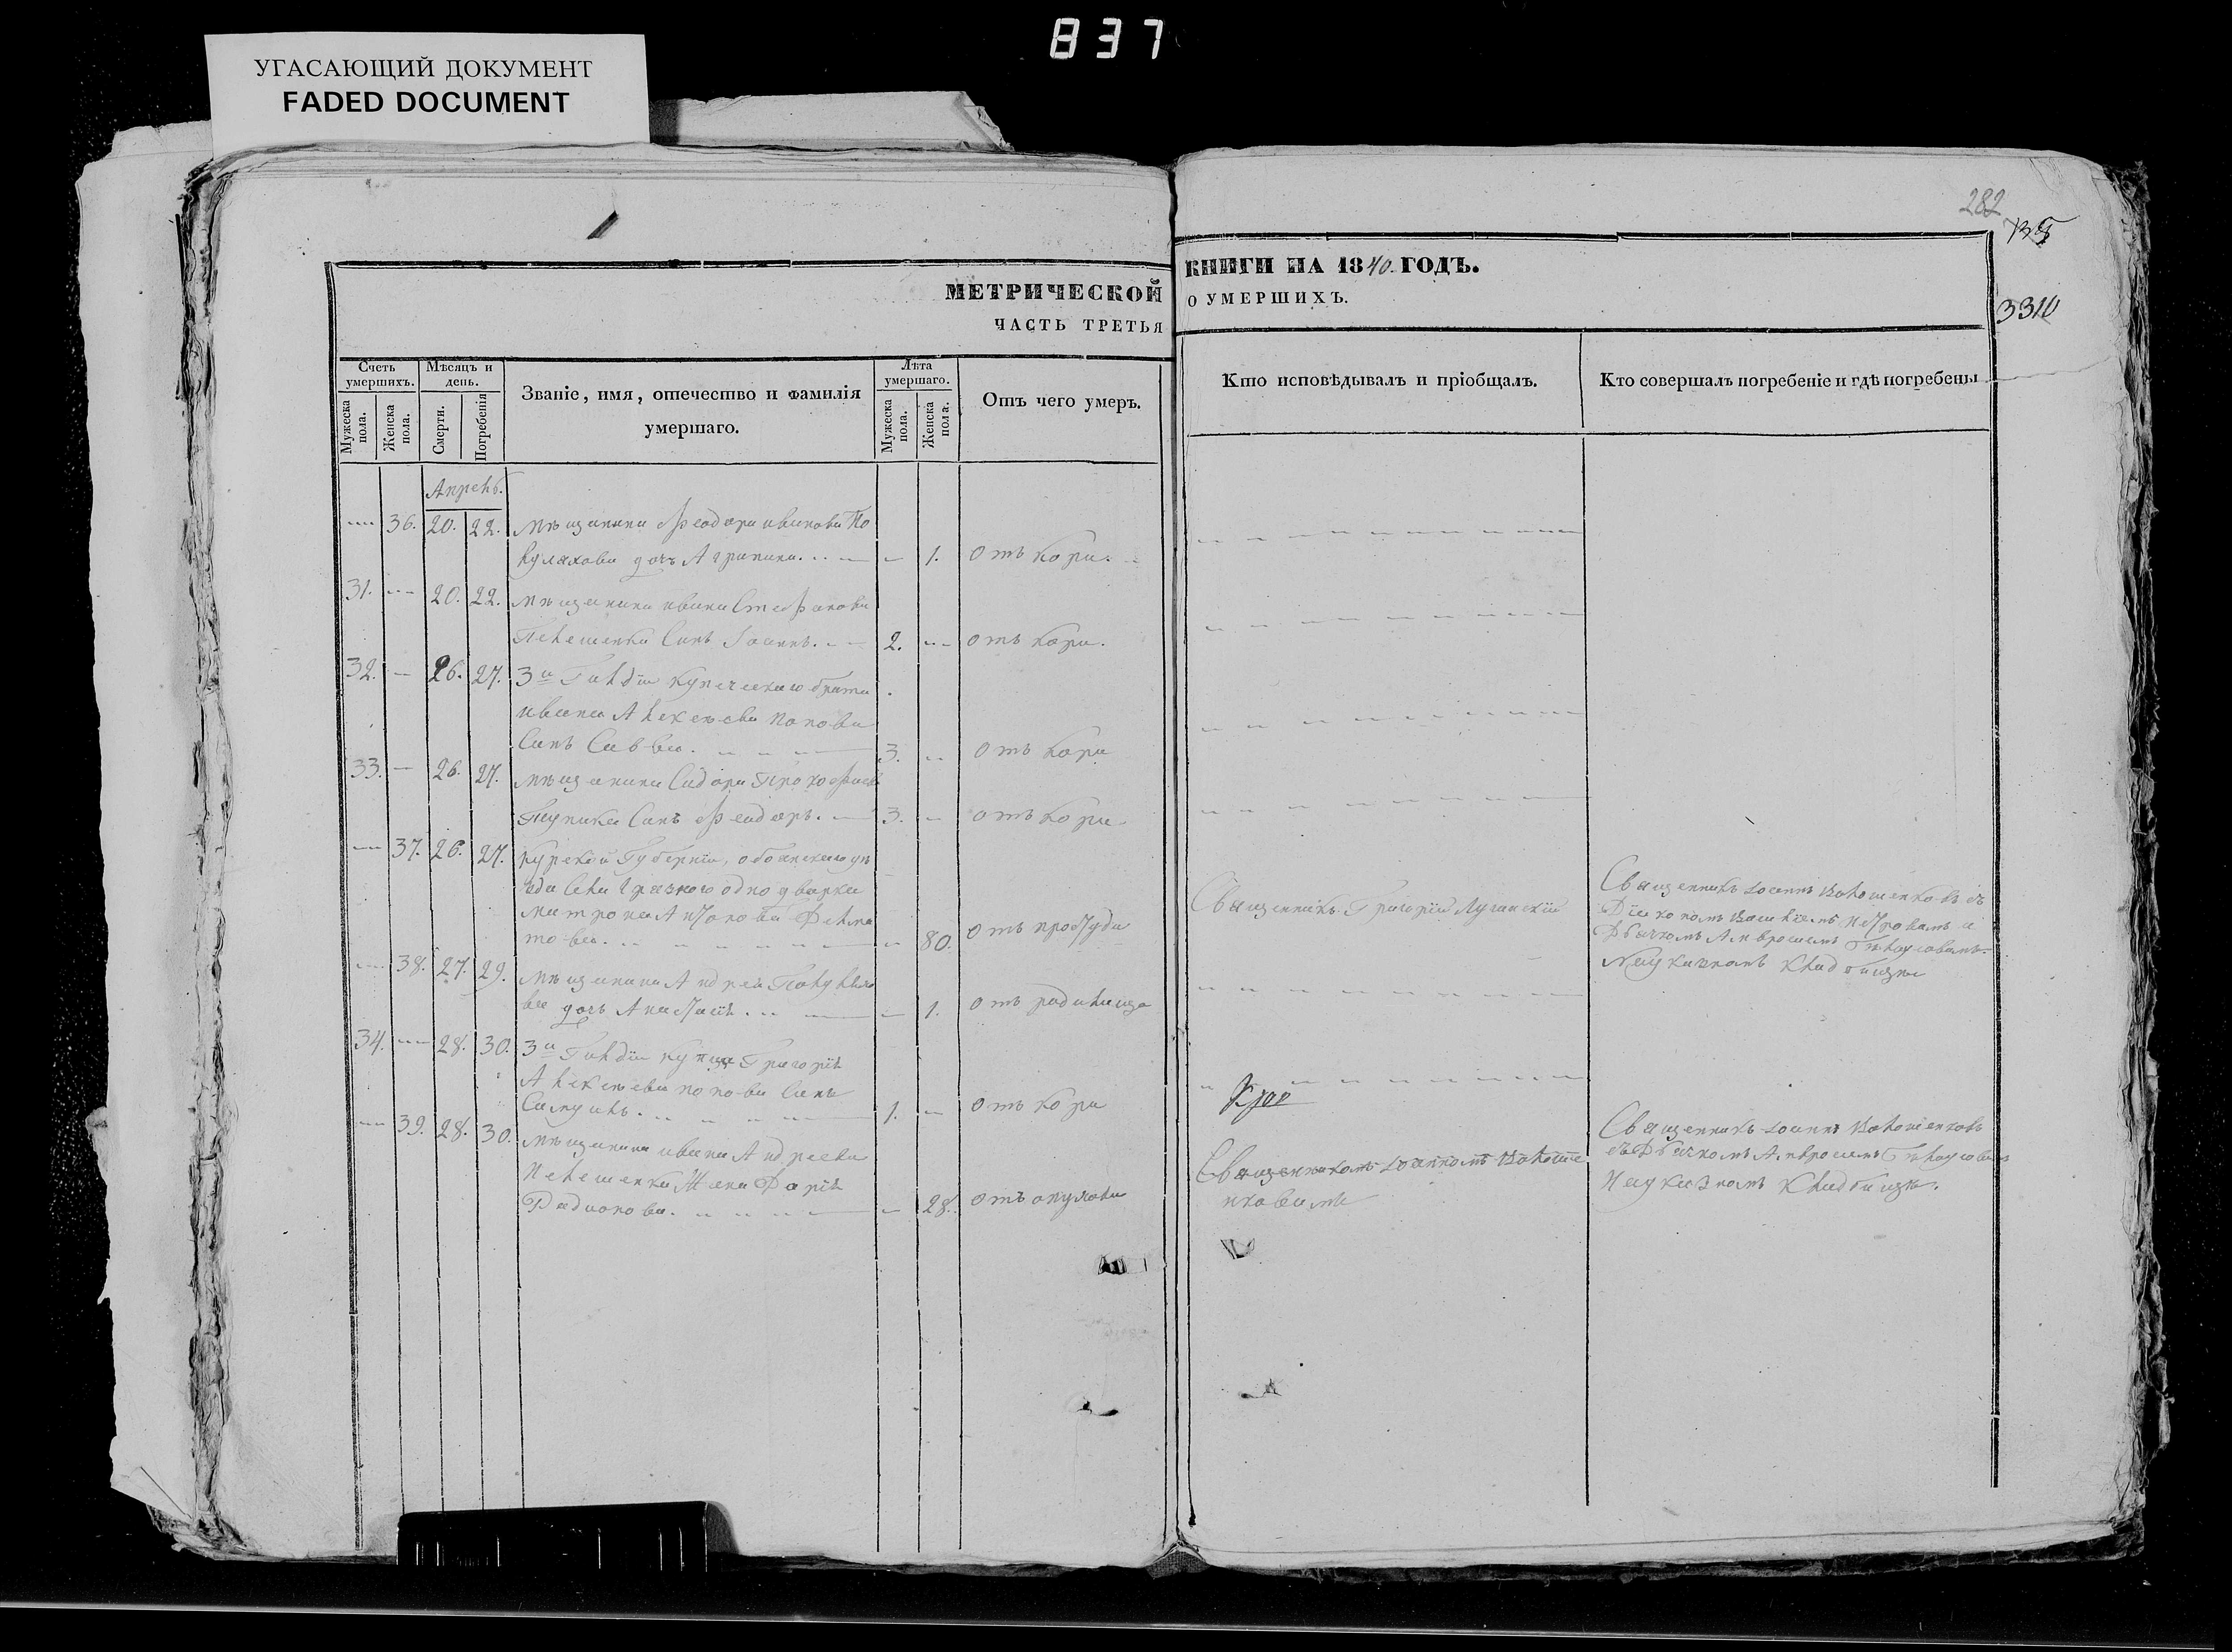 837
УГАСАЮЩИЙ ДОКУМЕНТ
FADED DOCUMENT
282
735
3310
МЕТРИЧЕСКОЙ КНИГИ НА 1840 ГОДЪ.
ЧАСТЬ ТРЕТЬЯ О УМЕРШИХЪ.
Счетъ умершихъ.
Мужеска пола.
Женска пола.
Мѣсяцъ и день.
Смерти.
Погребенія
Званіе, имя, отечество и фамилія
умершаго.
Лѣта умершаго.
Мужеска пола.
Женска пола.
Отъ чего умеръ.
Кто исповѣдывалъ и пріобщалъ.
Кто совершалъ погребеніе и гдѣ погребены
Апрель.
36. 20. 22. мѣщанина Феодора иванова
дочь Агрипина. 1. отъ кори.
31. 20. 22. мѣщанина ивана Стефанова
Пелешенка Сынъ Іоаннъ. 2. отъ кори.
32. 26. 27. 3й Гильдіи купеческаго брата
ивана Алексѣева попова
Сынъ Савва. 3. отъ кори
33. 26. 27. мѣщанина Сидора Прокофиева
Сынъ Феодоръ. 3. отъ кори
37. 26. 27. курской Губерніи, обоянскаго уѣ
зда Села одно дворка
матрона
80. отъ простуды
Священникъ Григорій Лучанскій
Священникъ Іоаннъ Волошенковъ съ
Діакономъ Василіемъ Петровымъ и
Дьячкомъ Амвросіемъ
На указномъ кладбищѣ
38. 27. 29. мѣщанина Андрея
дочь Анастасія. 1. отъ родимца
34. 28. 30. 3й Гильдіи купца Григорія
Алексѣева попова Сынъ
Самуилъ. 1. отъ кори
39. 28. 30. мѣщанина ивана Андреева
Пелешенка Жена Дарія
Радионова. 28. отъ опухоли
Священникомъ Іоанномъ Волоше
нковымъ
Священникъ Іоаннъ Волошенковъ
съ Дьячкомъ Амвросіемъ
На указномъ кладбищѣ.